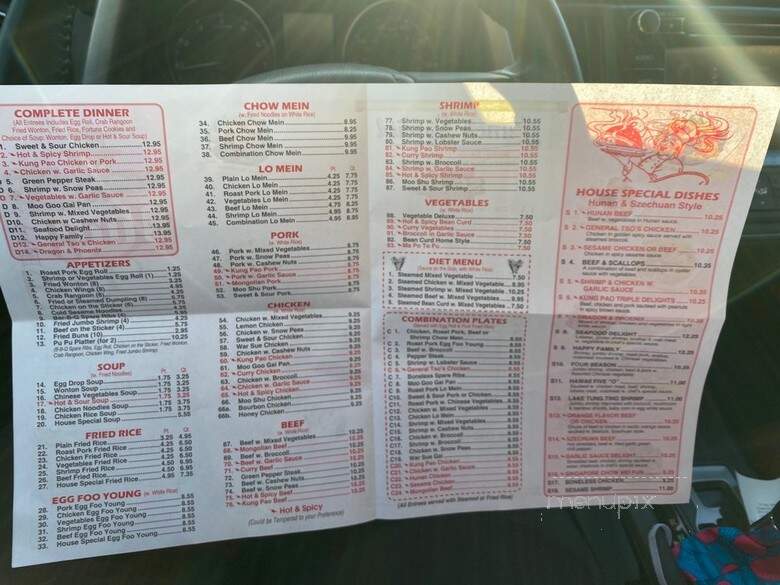 COMPLETE DINNER
(All Entrees Includes Egg Roll, Crab Rangoon
Fried Wonton, Fried Rice, Fortune Cookies and
Choice of Soup: Wonton, Egg Drop & Hot & Sour Soup)
1. Sweet & Sour Chicken 12.95
2. Hot & Spicy Shrimp 12.95
3. Kung Pao Chicken or Pork 12.95
4. Chicken w. Garlic Sauce 12.95
D 5. Green Pepper Steak 12.95
D 6. Shrimp w. Snow Peas 12.95
D 7. Vegetables w. Garlic Sauce 12.95
D 8. Moo Goo Gai Pan 12.95
D 9. Shrimp w. Mixed Vegetables 12.95
D10. Chicken w. Cashew Nuts 12.95
D11. Seafood Delight 12.95
D12. Happy Family 12.95
D13. General Tso's Chicken 12.95
D14. Dragon & Phoenix 12.95
APPETIZERS
1. Roast Pork Egg Roll 1.25
2. Shrimp or Vegetables Egg Roll (1)
3. Fried Wonton (8)
4. Chicken Wings (8)
5. Crab Rangoon (6)
6. Fried or Steamed Dumpling (8)
7. Chicken on the Sticker (5)
8. Cold Sesame Noodles
9. Bar-B-Q Spare Ribs (4)
10. Fried Jumbo Shrimp (4)
11. Beef on the Sticker (4)
12. Fried Buns (10)
13. Pu Pu Platter (for 2) 10.95
(B-B-Q Spare Ribs, Egg Roll, Chicken on the Sticker, Fried Wonton,
Crab Rangoon, Chicken Wing, Fried Jumbo Shrimp)
SOUP
(w. Fried Noodles)
14. Egg Drop Soup 1.75 3.25
15. Wonton Soup 1.75 3.25
16. Chinese Vegetables Soup 1.75 3.25
17. Hot & Sour Soup 1.75 3.25
18. Chicken Noodles Soup 1.75 3.25
19. Chicken Rice Soup 1.75 3.25
20. House Special Soup 5.55
FRIED RICE
21. Plain Fried Rice 3.25 4.95
22. Roast Pork Fried Rice 4.25 6.50
23. Chicken Fried Rice 4.25 6.50
24. Vegetables Fried Rice 4.25 6.50
25. Shrimp Fried Rice 4.50 6.95
26. Beef Fried Rice 4.50 6.95
27. House Special Fried Rice 7.35
EGG FOO YOUNG (w. White Rice)
28. Pork Egg Foo Young 8.55
29. Chicken Egg Foo Young 8.55
30. Vegetables Egg Foo Young 8.55
31. Shrimp Egg Foo Young 8.55
32. Beef Egg Foo Young 8.55
33. House Special Egg Foo Young 8.55
CHOW MEIN
(w. Fried Noodles on White Rice)
34. Chicken Chow Mein 8.95
35. Pork Chow Mein 8.25
36. Beef Chow Mein 8.95
37. Shrimp Chow Mein 8.95
38. Combination Chow Mein 8.95
LO MEIN
39. Plain Lo Mein 4.25 7.75
40. Chicken Lo Mein 4.25 7.75
41. Roast Pork Lo Mein 4.25 7.75
42. Vegetables Lo Mein 4.25 7.75
43. Beef Lo Mein 4.50 8.25
44. Shrimp Lo Mein 4.95 8.75
45. Combination Lo Mein 8.95
PORK
(w. White Rice)
46. Pork w. Mixed Vegetables 8.75
47. Pork w. Snow Peas 8.75
48. Pork w. Cashew Nuts 8.75
49. Kung Pao Pork 8.75
50. Pork w. Garlic Sauce 8.75
51. Mongolian Pork 8.75
52. Moo Shu Pork 8.75
53. Sweet & Sour Pork 8.75
CHICKEN
(w. White Rice)
54. Chicken w. Mixed Vegetables 8.95
55. Lemon Chicken 8.95
56. Chicken w. Snow Peas 8.95
57. Sweet & Sour Chicken 8.95
58. War Sue Chicken 8.95
59. Chicken w. Cashew Nuts 8.95
60. Kung Pao Chicken 8.95
61. Moo Goo Gai Pan 8.95
62. Curry Chicken 8.95
63. Chicken w. Broccoli 8.95
64. Chicken w. Garlic Sauce 8.95
65. Hot & Spicy Chicken 8.95
66. Moo Shu Chicken 8.95
66a. Bourbon Chicken 8.95
66b. Honey Chicken 8.95
BEEF
(w. White Rice)
67. Beef w. Mixed Vegetables 10.25
68. Mongolian Beef 10.25
69. Beef w. Broccoli 10.25
70. Beef w. Garlic Sauce 10.25
71. Curry Beef 10.25
72. Green Pepper Steak 10.25
73. Beef w. Cashew Nuts 10.25
74. Beef w. Snow Peas 10.25
75. Hot & Spicy Beef 10.25
76. Kung Pao Beef 10.25
Hot & Spicy
(Could be Tempered to your Preference)
SHRIMP
(w. White Rice)
77. Shrimp w. Vegetables 10.55
78. Shrimp w. Snow Peas 10.55
79. Shrimp w. Cashew Nuts 10.55
80. Shrimp w. Lobster Sauce 10.55
81. Kung Pao Shrimp 10.55
82. Curry Shrimp 10.55
83. Shrimp w. Broccoli 10.55
84. Shrimp w. Garlic Sauce 10.55
85. Hot & Spicy Shrimp 10.55
86. Moo Shu Shrimp 10.55
87. Sweet & Sour Shrimp 10.55
VEGETABLES
(w. White Rice)
88. Vegetable Deluxe 7.50
89. Hot & Spicy Bean Curd 7.50
90. Curry Vegetables 7.50
91. Broccoli in Garlic Sauce 7.50
92. Bean Curd Home Style 7.50
93. Ma Po To Fu 7.50
DIET MENU
(Sauce on the Side, with White Rice)
1. Steamed Mixed Vegetable 7.50
2. Steamed Chicken w. Mixed Vegetable 8.95
3. Steamed Shrimp w. Mixed Vegetable 10.25
4. Steamed Beef w. Mixed Vegetable 9.95
5. Steamed Bean Curd w. Mixed Vegetable 7.50
COMBINATION PLATES
(Served with Egg Roll & Pork Fried Rice)
C 1. Chicken, Roast Pork, Beef or
Shrimp Chow Mein
C 2. Roast Pork Egg Foo Young
C 3. Beef w. Broccoli
C 4. Pepper Steak
C 5. Shrimp w. Lobster Sauce
C 6. General Tso's Chicken
C 7. Boneless Spare Ribs
C 8. Moo Goo Gai Pan
C 9. Roast Pork Lo Mein
C10. Sweet & Sour Pork or Chicken
C11. Roast Pork w. Chinese Vegetables
C12. Chicken w. Mixed Vegetables
C13. Chicken Lo Mein
C14. Shrimp w. Mixed Vegetables
C15. Shrimp w. Cashew Nuts
C16. Chicken w. Broccoli
C17. Shrimp w. Broccoli
C18. Chicken w. Snow Peas
C19. Shrimp Lo Mein
C20. Kung Pao Chicken
C21. Chicken w. Garlic Sauce
C22. Hunan Chicken
C23. Sesame Chicken
C24. Mongolian Beef
(All Entrees served with Steamed or Fried Rice)
HOUSE SPECIAL DISHES
Hunan & Szechuan Style
S 1. HUNAN BEEF 10.25
S 2. GENERAL TSO'S CHICKEN 10.25
S 3. SESAME CHICKEN OR BEEF 10.25
Chicken in spicy sesame sauce
S 4. BEEF & SCALLOPS
S 5. SHRIMP & CHICKEN W.
GARLIC SAUCE 10.25
S 6. KUNG PAO TRIPLE DELIGHTS 10.25
S 7. DRAGON & PHOENIX
S 8. SEAFOOD DELIGHT 12.25
S 9. HAPPY FAMILY
S10. FOUR SEASON 10.25
S11. HAWAII FIVE "O" 11.00
S12. LAKE TUNG TING SHRIMP
S13. ORANGE FLAVOR BEEF
OR CHICKEN
S14. SZECHUAN BEEF 10.25
S15. GARLIC SAUCE DELIGHT
S16. SINGAPORE CHOW MEI FUN
S17. BONELESS CHICKEN
S18. SESAME SHRIMP 11.00
menupix